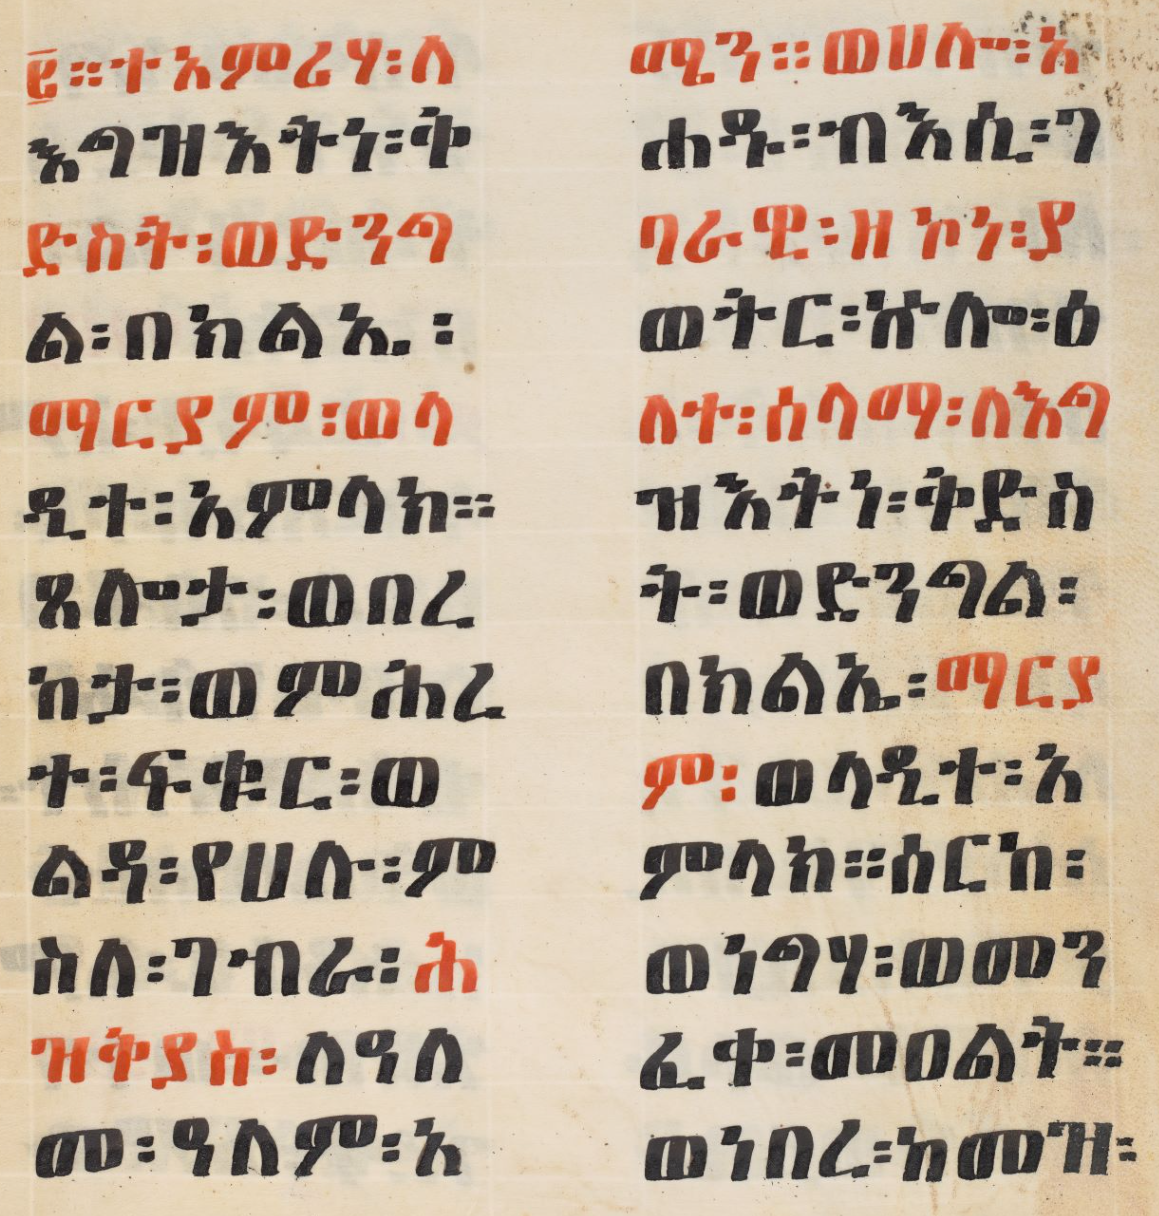 ፪። ተአምሪሃ፡ ለ
እግዝእትነ፡ ቅ
ድስት፡ ወድንግ
ል፡ በክልኤ፡
ማርያም፡ ወላ
ዲተ፡ አምላክ።
ጸሎታ፡ ወበረ
ከታ፡ ወምሕረ
ተ፡ ፍቁር፡ ወ
ልዳ፡ የሀሉ፡ ም
ስለ፡ ገብራ፡ ሕ
ዝቅያስ፡ ለዓለ
መ፡ ዓለም፡ አ
ሜን። ወሀሎ፡ አ
ሐዱ፡ ብእሲ፡ ገ
ባራዊ፡ ዘኮነ፡ ያ
ወትር፡ ኵሎ፡ ዕ
ለተ፡ ሰላማ፡ ለእግ
ዝእትነ፡ ቅድስ
ት፡ ወድንግል፡
በክልኤ፡ ማርያ
ም፡ ወላዲተ፡ አ
ምላክ። ሰርከ፡
ወነግሃ፡ ወመን
ፈቀ፡ መዐልት።
ወነበረ፡ ከመዝ፡